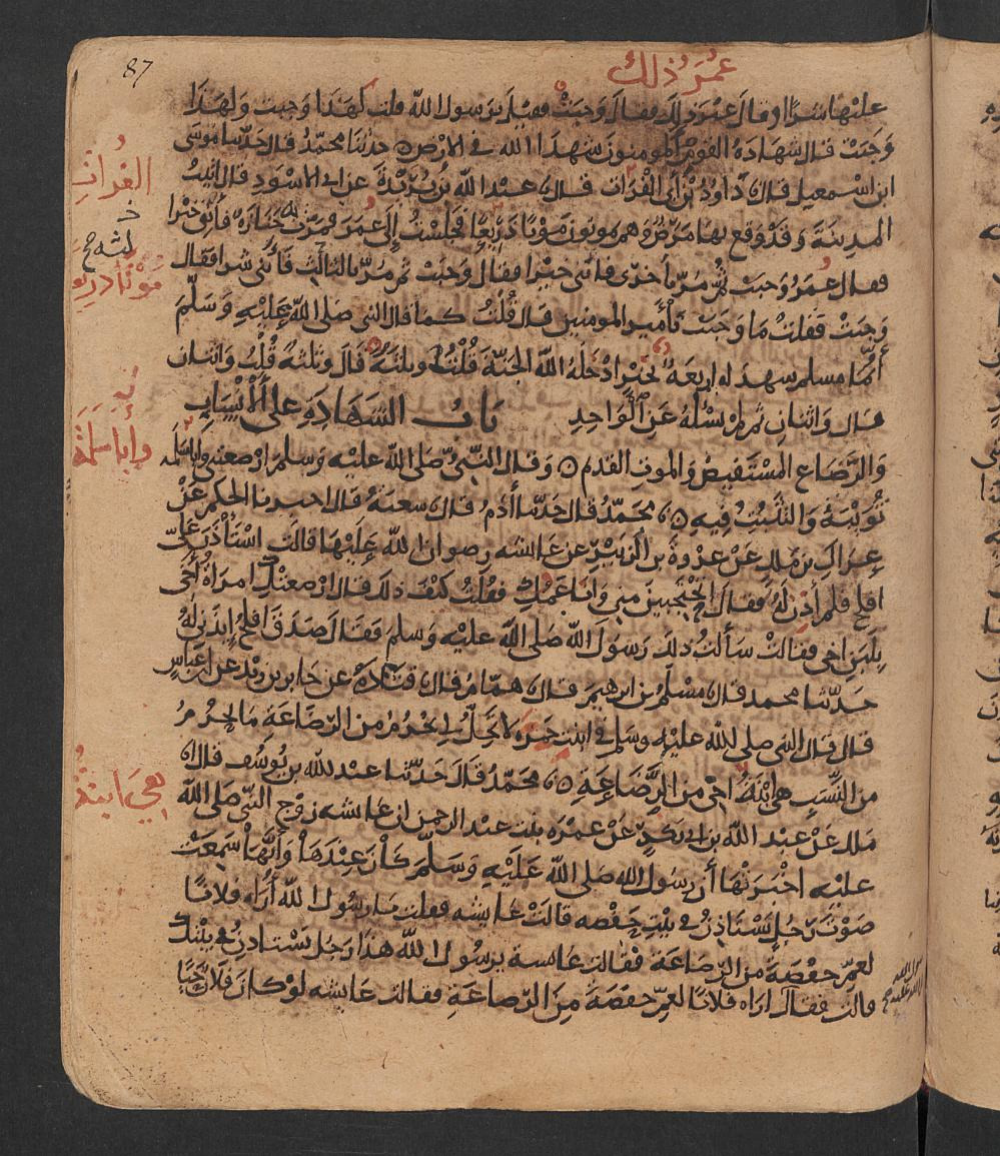 87
عُمَرُ ذلك
عليها شرًّا او قال غير ذلك فقال وَجَبَتْ فقيل يرسول الله قلت لهذا وجبت ولهذا
وَجَبَتْ قال شهادة القوم المومنون شهدا الله في الارض ○ حدثنا محمد قال حدثنا موسى
ابن اسمعيل قال نا داود بن أبي الفرات قال نا عبد الله بن بريدة عن ابي الاسود قال اتيت
المدينة وقد وقع بها مرض وهم يموتون موتا ذريعا فجلست إلى عمر فمرت به جنازة فأثني خيرا
فقال عمر وجبت ثم مر بأخرى فاثني خيرا فقال وجبت ثم مر بالثالث فأثني شرا فقال
وجبت فقلت ما وجبت يأمير المومنين قال قلت كما قال النبي صلى الله عليه وسلم
أيما مسلم شهد له اربعة بخير ادخله الله الجنة قلنا وثلثة قال وثلثة قلت واثنان
قال واثنان ثم لم نسئله عن الواحد باب الشهادة على الأنساب
والرضاع المستفيض والموت القديم ○ وقال النبي صلى الله عليه وسلم ارضعتني وابا سلمة
ثويبة والتثبت فيه ○ نا محمد قال حدثنا أدم قال نا شعبة قال اخبرنا الحكم عن
عراك بن ملك عن عروة بن الزبير عن عايشه رضوان الله عليها قالت استأذن علي
افلح فلم أذن له فقال اتحتجبين مني وانا عمك فقلت كيف ذلك قال ارضعتك امراة أخي
بلبن اخي فقالت سألت ذلك رسول الله صلى الله عليه وسلم فقال صدق افلح إيذني له
حدثنا محمد قال نا مسلم بن ابرهيم قال نا همام قال نا قتادة عن جابر بن زيد عن ابن عباس
قال قال النبي صلى الله عليه وسلم في ابنت حمزة لا تحل لي يحرم من الرضاعة ما يحرم
من النسب هي ابنة اخي من الرضاعة ○ نا محمد قال حدثنا عبد الله بن يوسف قال انا
ملك عن عبد الله بن ابي بكر عن عمرة بنت عبد الرحمن ان عايشه زوج النبي صلى الله
عليه اخبرتها أن رسول الله صلى الله عليه وسلم كان عندها وأنها سمعت
صوت رجل يستاذن في بيت حفصه قالت عايشه فقلت يا رسول الله أراه فلانا
لعم حفصة من الرضاعة فقالت عايسة يرسول الله هذا رجل يستاذن في بيتك
قالت فقال اراه فلانا لعم حفصة من الرضاعة فقالت عايشه لو كان فلان حيا
الفرات
موتا ذريعا
وابا سلمة
هي ابنة